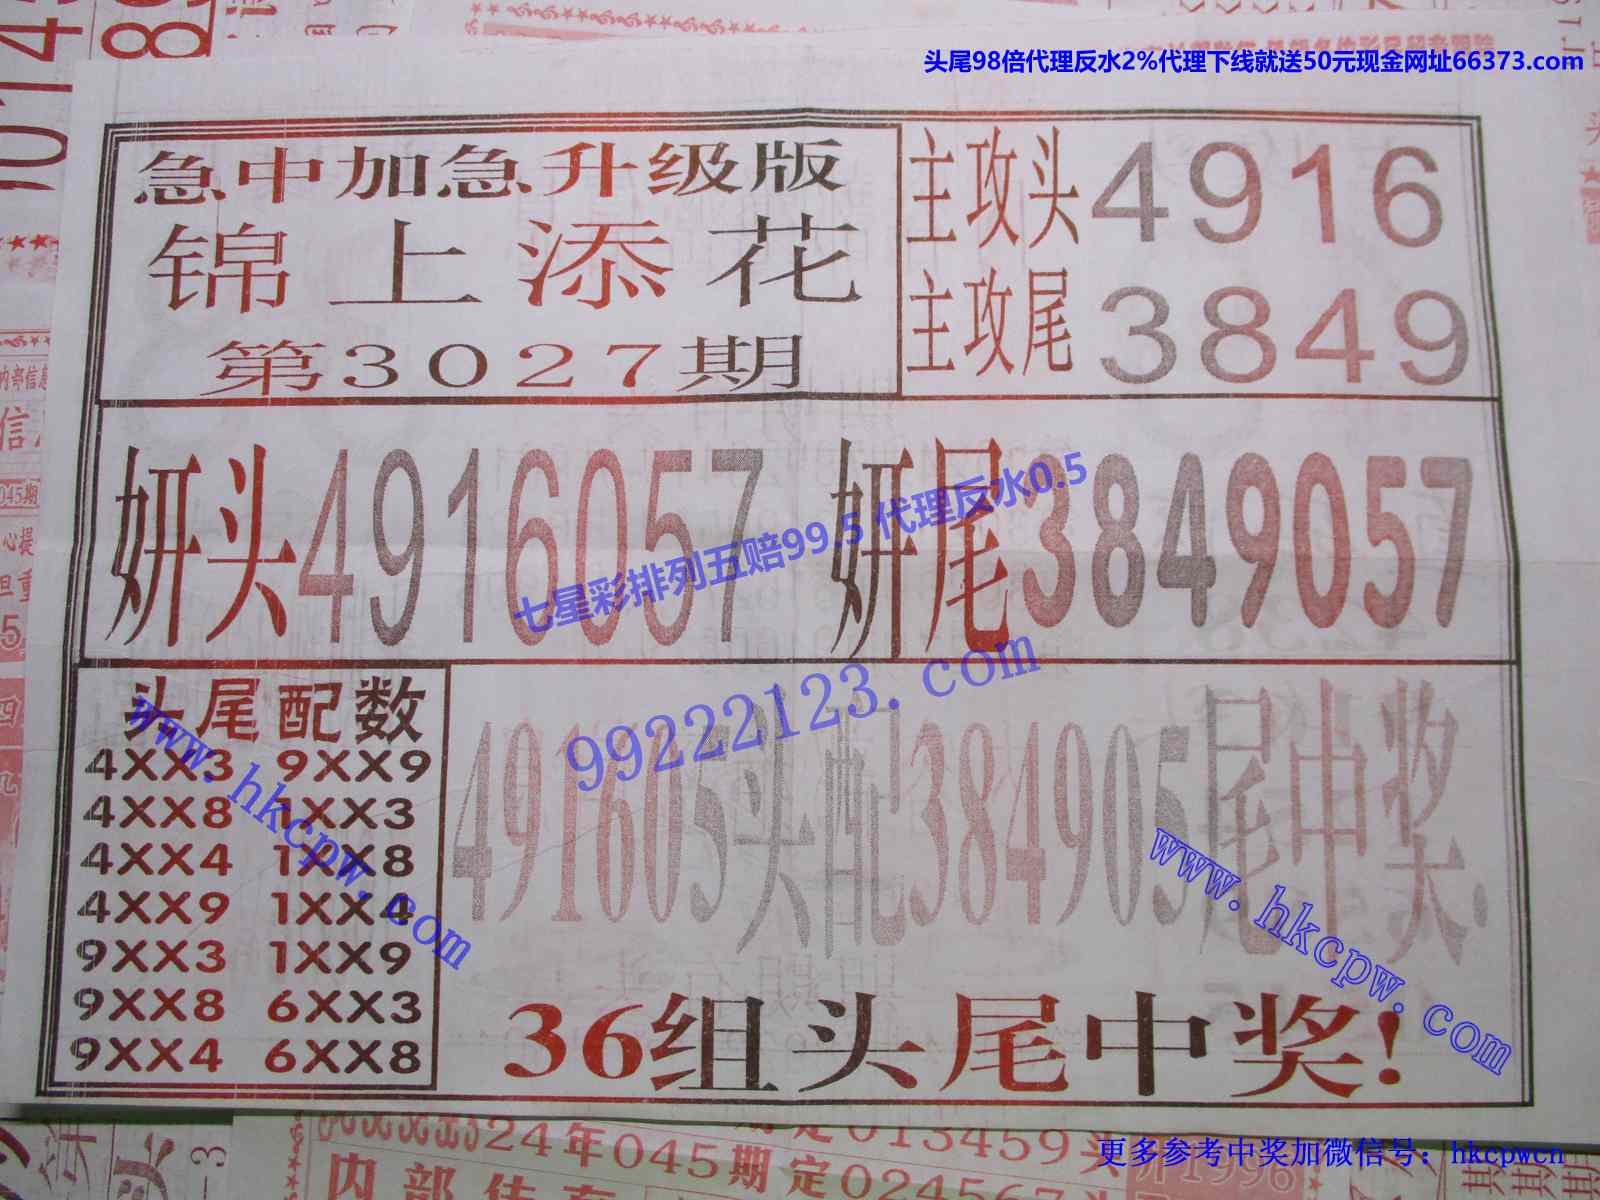 头尾98倍代理反水2%代理下线就送50元现金网址66373.com
急中加急升级版
锦上添花
第3027期
主攻头4916
主攻尾3849
妍头4916057 妍尾3849057
七星彩排列五赔99.5 代理反水0.5
99222123.com
头尾配数
4XX3 9XX9
4XX8 1XX3
4XX4 1XX8
4XX9 1XX4
9XX3 1XX9
9XX8 6XX3
9XX4 6XX8
www.hkcpw.com
491605头配384905尾中奖.
www.hkcpw.com
36组头尾中奖!
24年045期定013459头
内部
更多参考中奖加微信号：hkcpwcn